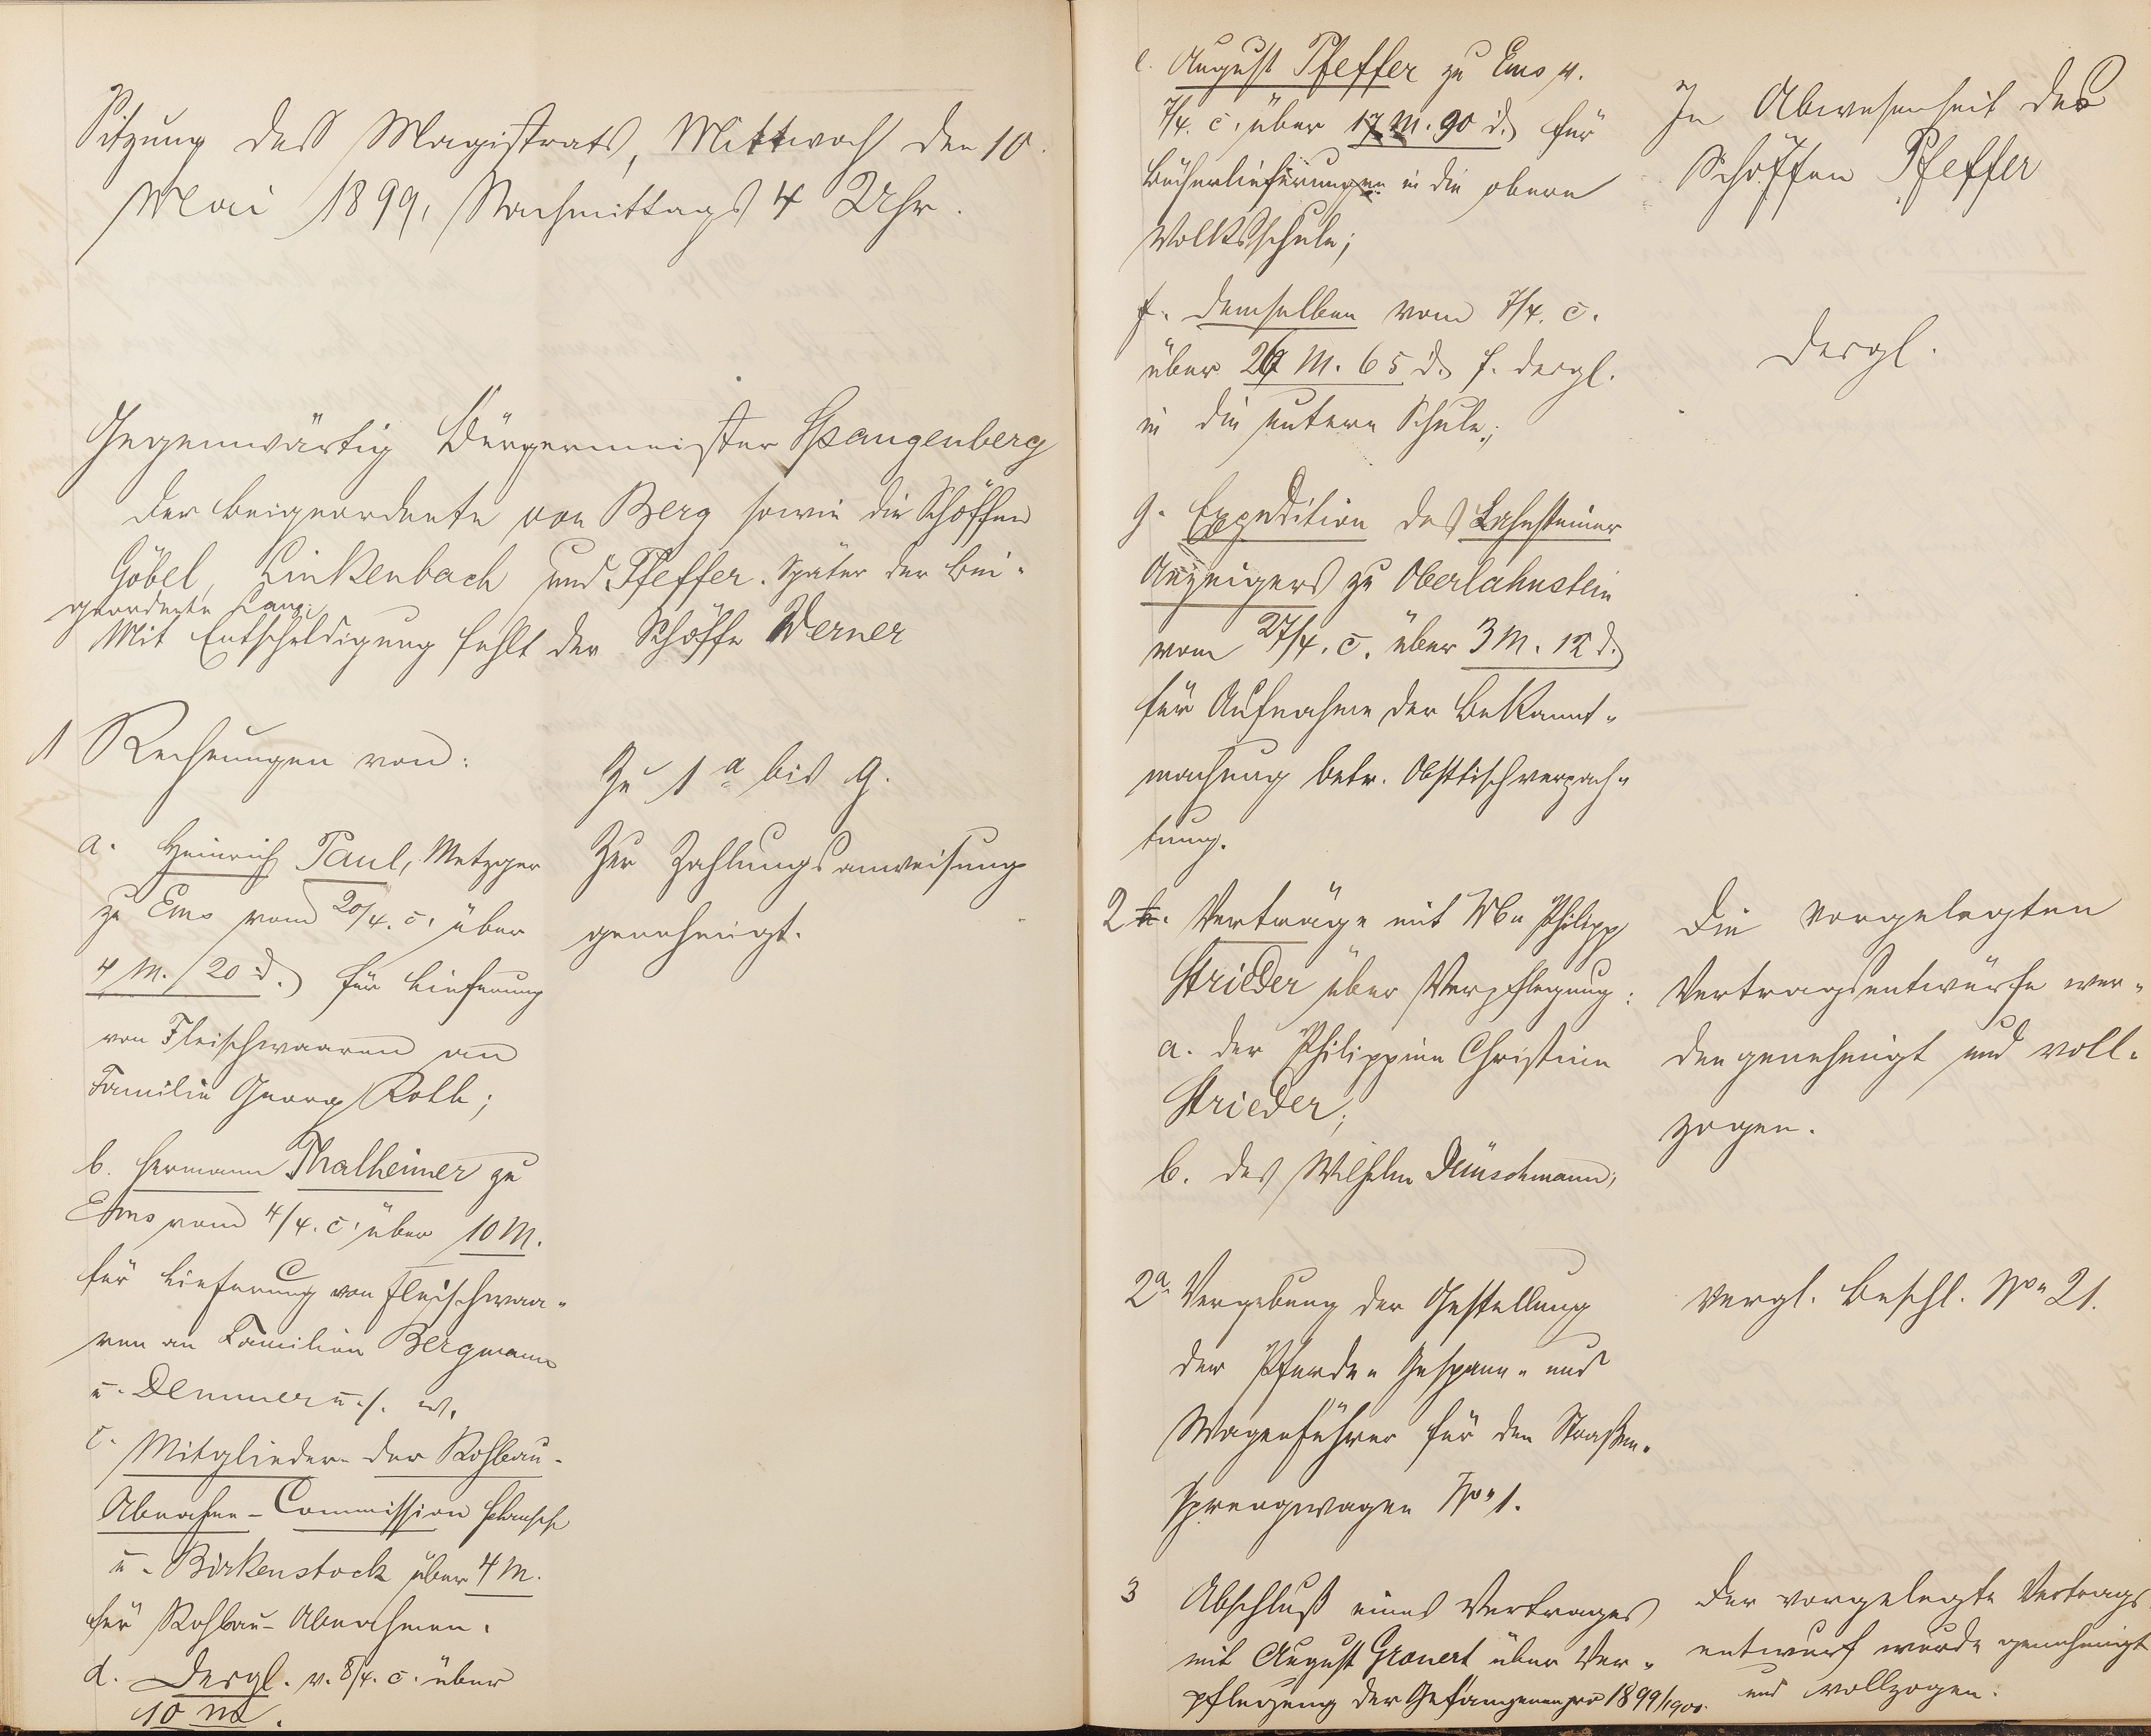 Sitzung des Magistrats, Mittwoch den 10.
Mai 1899, Nachmittags 4 Uhr.
Gegenwärtig Bürgermeister Spangenberg
der Beigeordnete von Berg sowie die Schöffen
Göbel, Linkenbach und Pfeffer. Später der Bei-
geordnete Lang.
Mit Entschuldigung fehlt der Schöffe Werner
1 Rechnungen von:
a. Heinrich Paul, Metzger
zu Ems vom 20/4. c. über
4 M. 20 d. für Lieferung
von Fleischwaaren an
Familie Georg Roth;
b. Hermann Thalheimer zu
Ems vom 4/4. c. über 10 M.
für Lieferung von Fleischwaa-
ren an Familien Bergmann
u. Demmer u. s. w.
c. Mitglieder der Rohbau-
Abnahme-Commission
u. Birkenstock über 4 M.
für Rohbau-Abnahmen.
d. Dergl. v. 8/4. c. über
10 M.
Zu 1 a bis g.
Zur Zahlungsanweisung
genehmigt.
e. August Pfeffer zu Ems v.
7/4. c. über 17 M. 90 d. für
Bücherlieferungen in die obere
Volksschule;
f. demselben vom 7/4. c.
über M. 65 d. f. dergl.
in die untere Schule;
g. Expedition des Lahnsteiner
Anzeigers zu Oberlahnstein
vom 27/4. c. über 3 M. 12 d.
für Aufnahme der Bekannt-
machung betr. Obsttischverpach-
tung.
2. Verträge mit Ww. Philipp
Strieder über Verpflegung:
a. der Philippine Christine
Strieder;
b. des Wilhelm Dünschmann,
2a. Vergebung der Gestellung
der Pferde- Gespann- und
Wagenführer für den Straßen-
sprengwagen No 1.
3 Abschluß eines Vertrages
mit August Gronert über Ver-
pflegung der Gefangenen pro 1899/1900.
In Abwesenheit des
Schöffen Pfeffer
dergl.
Die vorgelegten
Vertragsentwürfe wer-
den genehmigt und voll-
zogen.
Vergl. Beschl. No 21.
Der vorgelegte Vertrags
entwurf wurde genehmigt
und vollzogen.